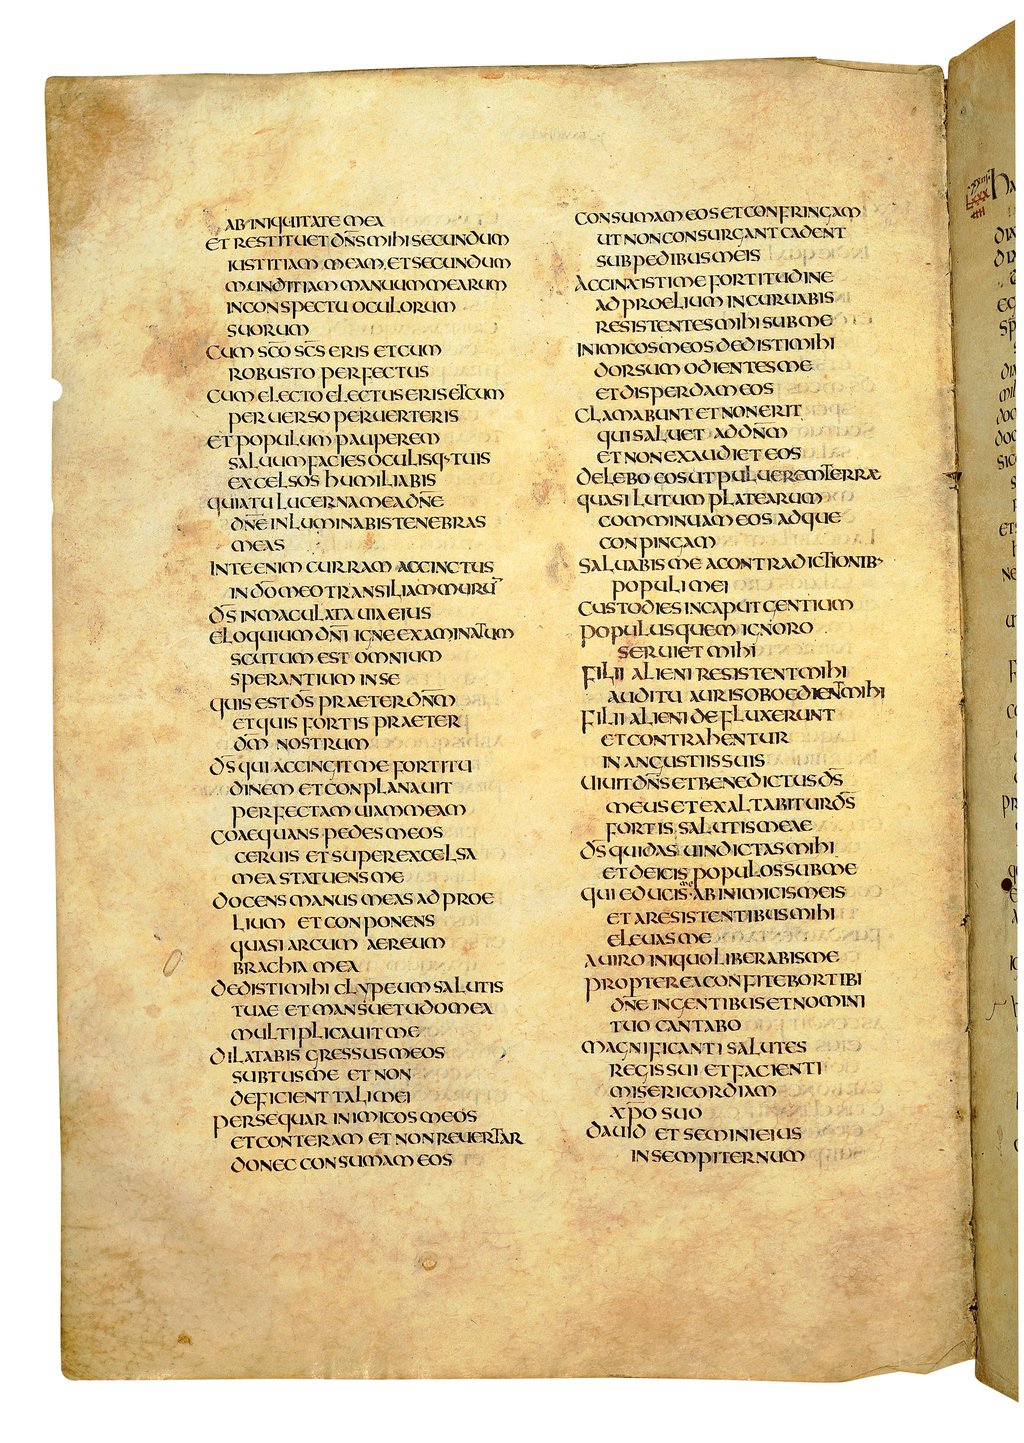 AB INIQUITATE MEA
ET RESTITUET DN̅S MIHI SECUNDUM
IUSTITIAM MEAM ET SECUNDUM
MUNDITIAM MANUUM MEARUM
IN CONSPECTU OCULORUM
SUORUM
CUM SC̅O SC̅S ERIS ET CUM
ROBUSTO PERFECTUS
CUM ELECTO ELECTUS ERIS ET CUM
PERUERSO PERUERTERIS
ET POPULUM PAUPEREM
SALUUM FACIES OCULISQ· TUIS
EXCELSOS HUMILIABIS
QUIA TU LUCERNA MEA DN̅E
DN̅E INLUMINABIS TENEBRAS
MEAS
IN TE ENIM CURRAM ACCINCTUS
IN DO̅ MEO TRANSILIAM MURU̅
DS̅ INMACULATA UIA EIUS
ELOQUIUM DNI̅ IGNE EXAMINATUM
SCUTUM EST OMNIUM
SPERANTIUM IN SE
QUIS EST DS̅ PRAETER DN̅M
ET QUIS FORTIS PRAETER
DM̅ NOSTRUM
DS̅ QUI ACCINGIT ME FORTITU
DINEM ET CONPLANAUIT
PERFECTAM UIAM MEAM
COAEQUANS PEDES MEOS
CERUIS ET SUPER EXCELSA
MEA STATUENS ME
DOCENS MANUS MEAS AD PROE
LIUM ET CONPONENS
QUASI ARCUM AEREUM
BRACHIA MEA
DEDISTI MIHI CLYPEUM SALUTIS
TUAE ET MANSUETUDO MEA
MULTIPLICAUIT ME
DILATABIS GRESSUS MEOS
SUBTUS ME ET NON
DEFICIENT TALI MEI
PERSEQUAR INIMICOS MEOS
ET CONTERAM ET NON REUERTAR
DONEC CONSUMAM EOS
CONSUMAM EOS ET CONFRINGAM
UT NON CONSURGANT CADENT
SUB PEDIBUS MEIS
ACCINXISTI ME FORTITUDINE
AD PROELIUM INCURUABIS
RESISTENTES MIHI SUB ME
INIMICOS MEOS DEDISTI MIHI
DORSUM ODIENTES ME
ET DISPERDAM EOS
CLAMABUNT ET NON ERIT
QUI SALUET AD DN̅M
ET NON EXAUDIET EOS
DELEBO EOS UT PULUEREM TERRAE
QUASI LUTUM PLATEARUM
COMMINUAM EOS ADQUE
CONPINGAM
SALUABIS ME A CONTRADICTIONIB·
POPULI MEI
CUSTODIES IN CAPUT GENTIUM
POPULUS QUEM IGNORO
SERUIET MIHI
FILII ALIENI RESISTENT MIHI
AUDITU AURIS OBOEDIENT MIHI
FILII ALIENI DEFLUXERUNT
ET CONTRAHENTUR
IN ANGUSTIIS SUIS
UIUIT DN̅S ET BENEDICTUS DS̅
MEUS ET EXALTABITUR DS̅
FORTIS SALUTIS MEAE
DS̅ QUI DAS UINDICTAS MIHI
ET DEICIS POPULOS SUB ME
QUI EDUCIS ME AB INIMICIS MEIS
ET A RESISTENTIBUS MIHI
ELEUAS ME
A UIRO INIQUO LIBERABIS ME
PROPTEREA CONFITEBOR TIBI
DN̅E IN GENTIBUS ET NOMINI
TUO CANTABO
MAGNIFICANTI SALUTES
REGIS SUI ET FACIENTI
MISERICORDIAM
XP̅O SUO
DAUID ET SEMINI EIUS
IN SEMPITERNUM